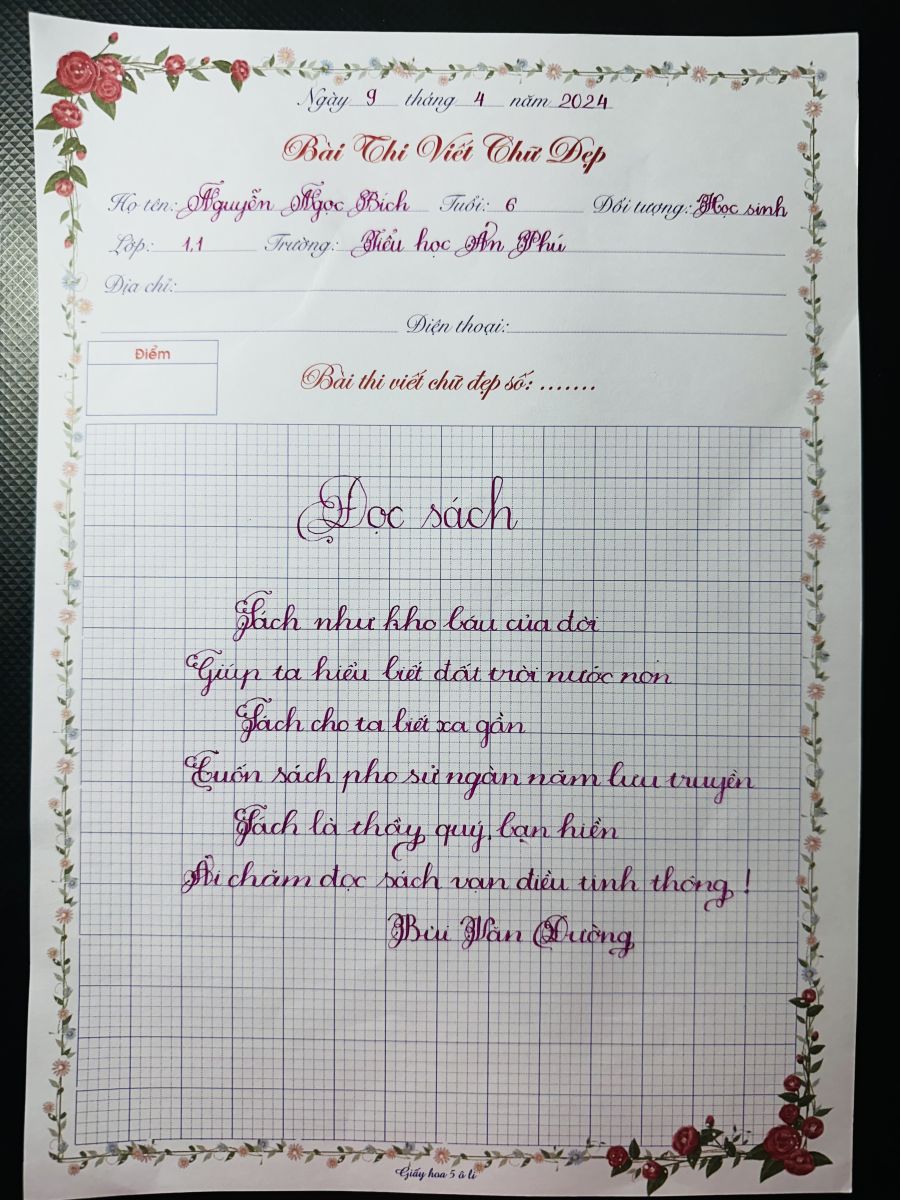 Ngày 9 tháng 4 năm 2024
Bài Thi Viết Chữ Đẹp
Họ tên: Nguyễn Ngọc Bích Tuổi: 6 Đối tượng: Học sinh
Lớp: 1.1 Trường: Tiểu học An Phú
Địa chỉ:
Điện thoại:
Điểm
Bài thi viết chữ đẹp số: .......
Đọc sách
Sách như kho báu của đời
Giúp ta hiểu biết đất trời nước non
Sách cho ta biết xa gần
Cuốn sách pho sử ngàn năm lưu truyền
Sách là thầy quý, bạn hiền
Ai chăm đọc sách vạn điều tinh thông!
Bùi Văn Đường
Giấy hoa 5 ô li